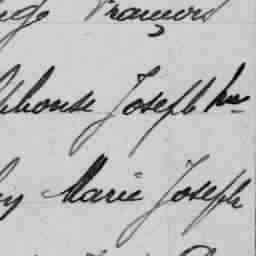 François
phonse Joseph
Marie Joseph